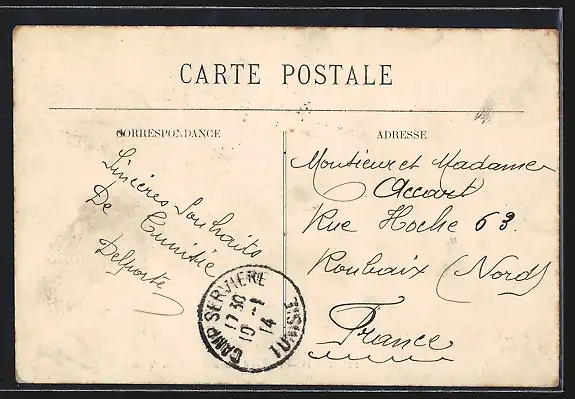 CARTE POSTALE
CORRESPONDANCE
Sincères Souhaits
De Tunisie
Delporte
ADRESSE
Monsieur et Madame
Accart
Rue Hoche 63
Roubaix (Nord)
France
CAMP-SERVIERE
17 30
10 - 1
14
TUNISIE